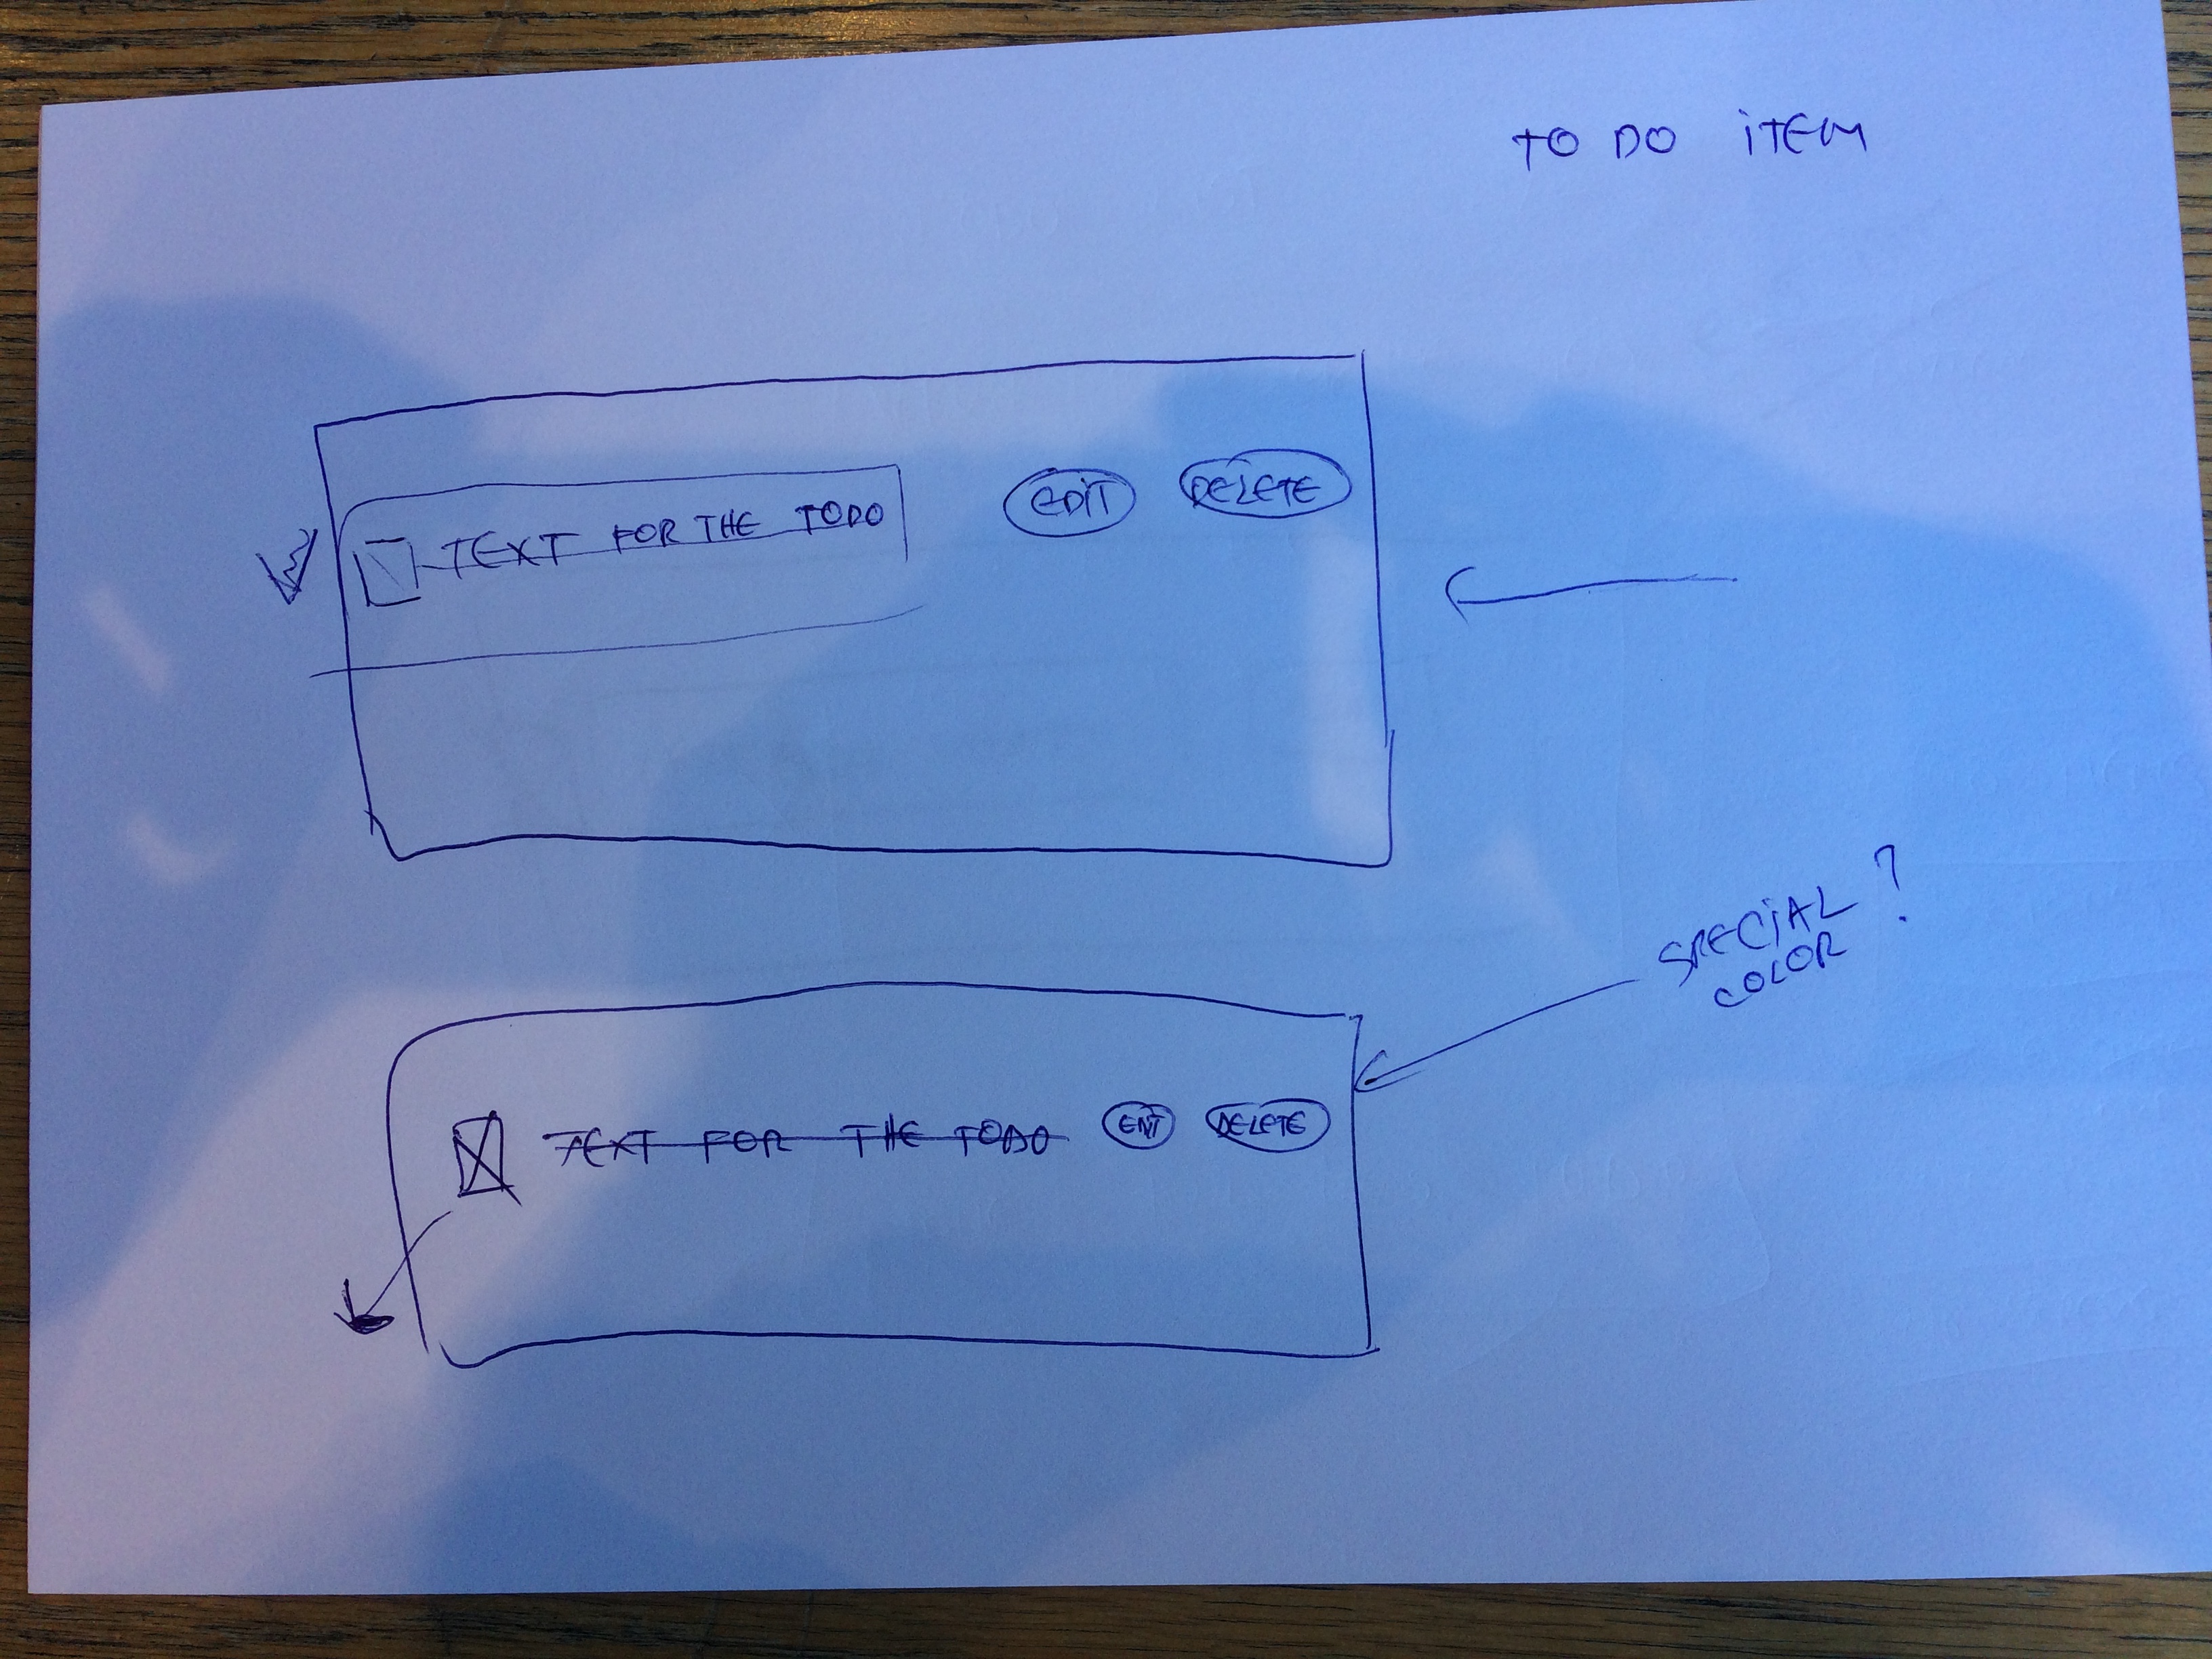 TO DO iTEM
TEXT FOR THE TODO
EDIT
DELETE
SPECiAL ?
COLOR
TEXT FOR THE TODO
DELETE